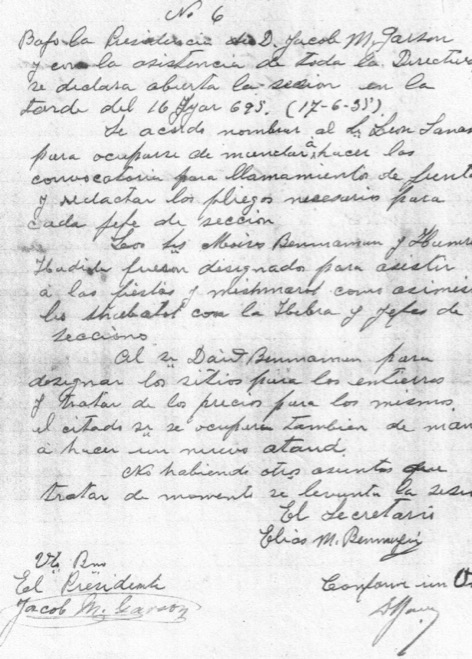 No 6
Bajo la Presidencia de D. Jacob M. Garson
y con la asistencia de toda la Directiv
se declara abierta la sesion en la
tarde del 16 Iyar 695. (17-6-35)
Se acordo nombrar al Sr Leon
para ocuparse de mandar a hacer las
convocatoria para llamamiento de
y redactar los pliegos necesario para
cada jefe de sección
Los Srs Moises Bennaman y
Hadida fueron designado para asistir
á las fiestas y mishmarot como asimis
los shabatot con la Hebra y jefes de
secciones
Al Sr David Bennaman para
designar los sitios para los entierros
y tratar de los precios para los mismos
el citado Sr se ocupará tambien de man
á hacer un nuevo ataud.
No habiendo otros asuntos que
tratar de momento se levanta la sesi
El Secretario
Elias M.
Vto Bno
El Presidente
Jacob M. Garson
Conforme un